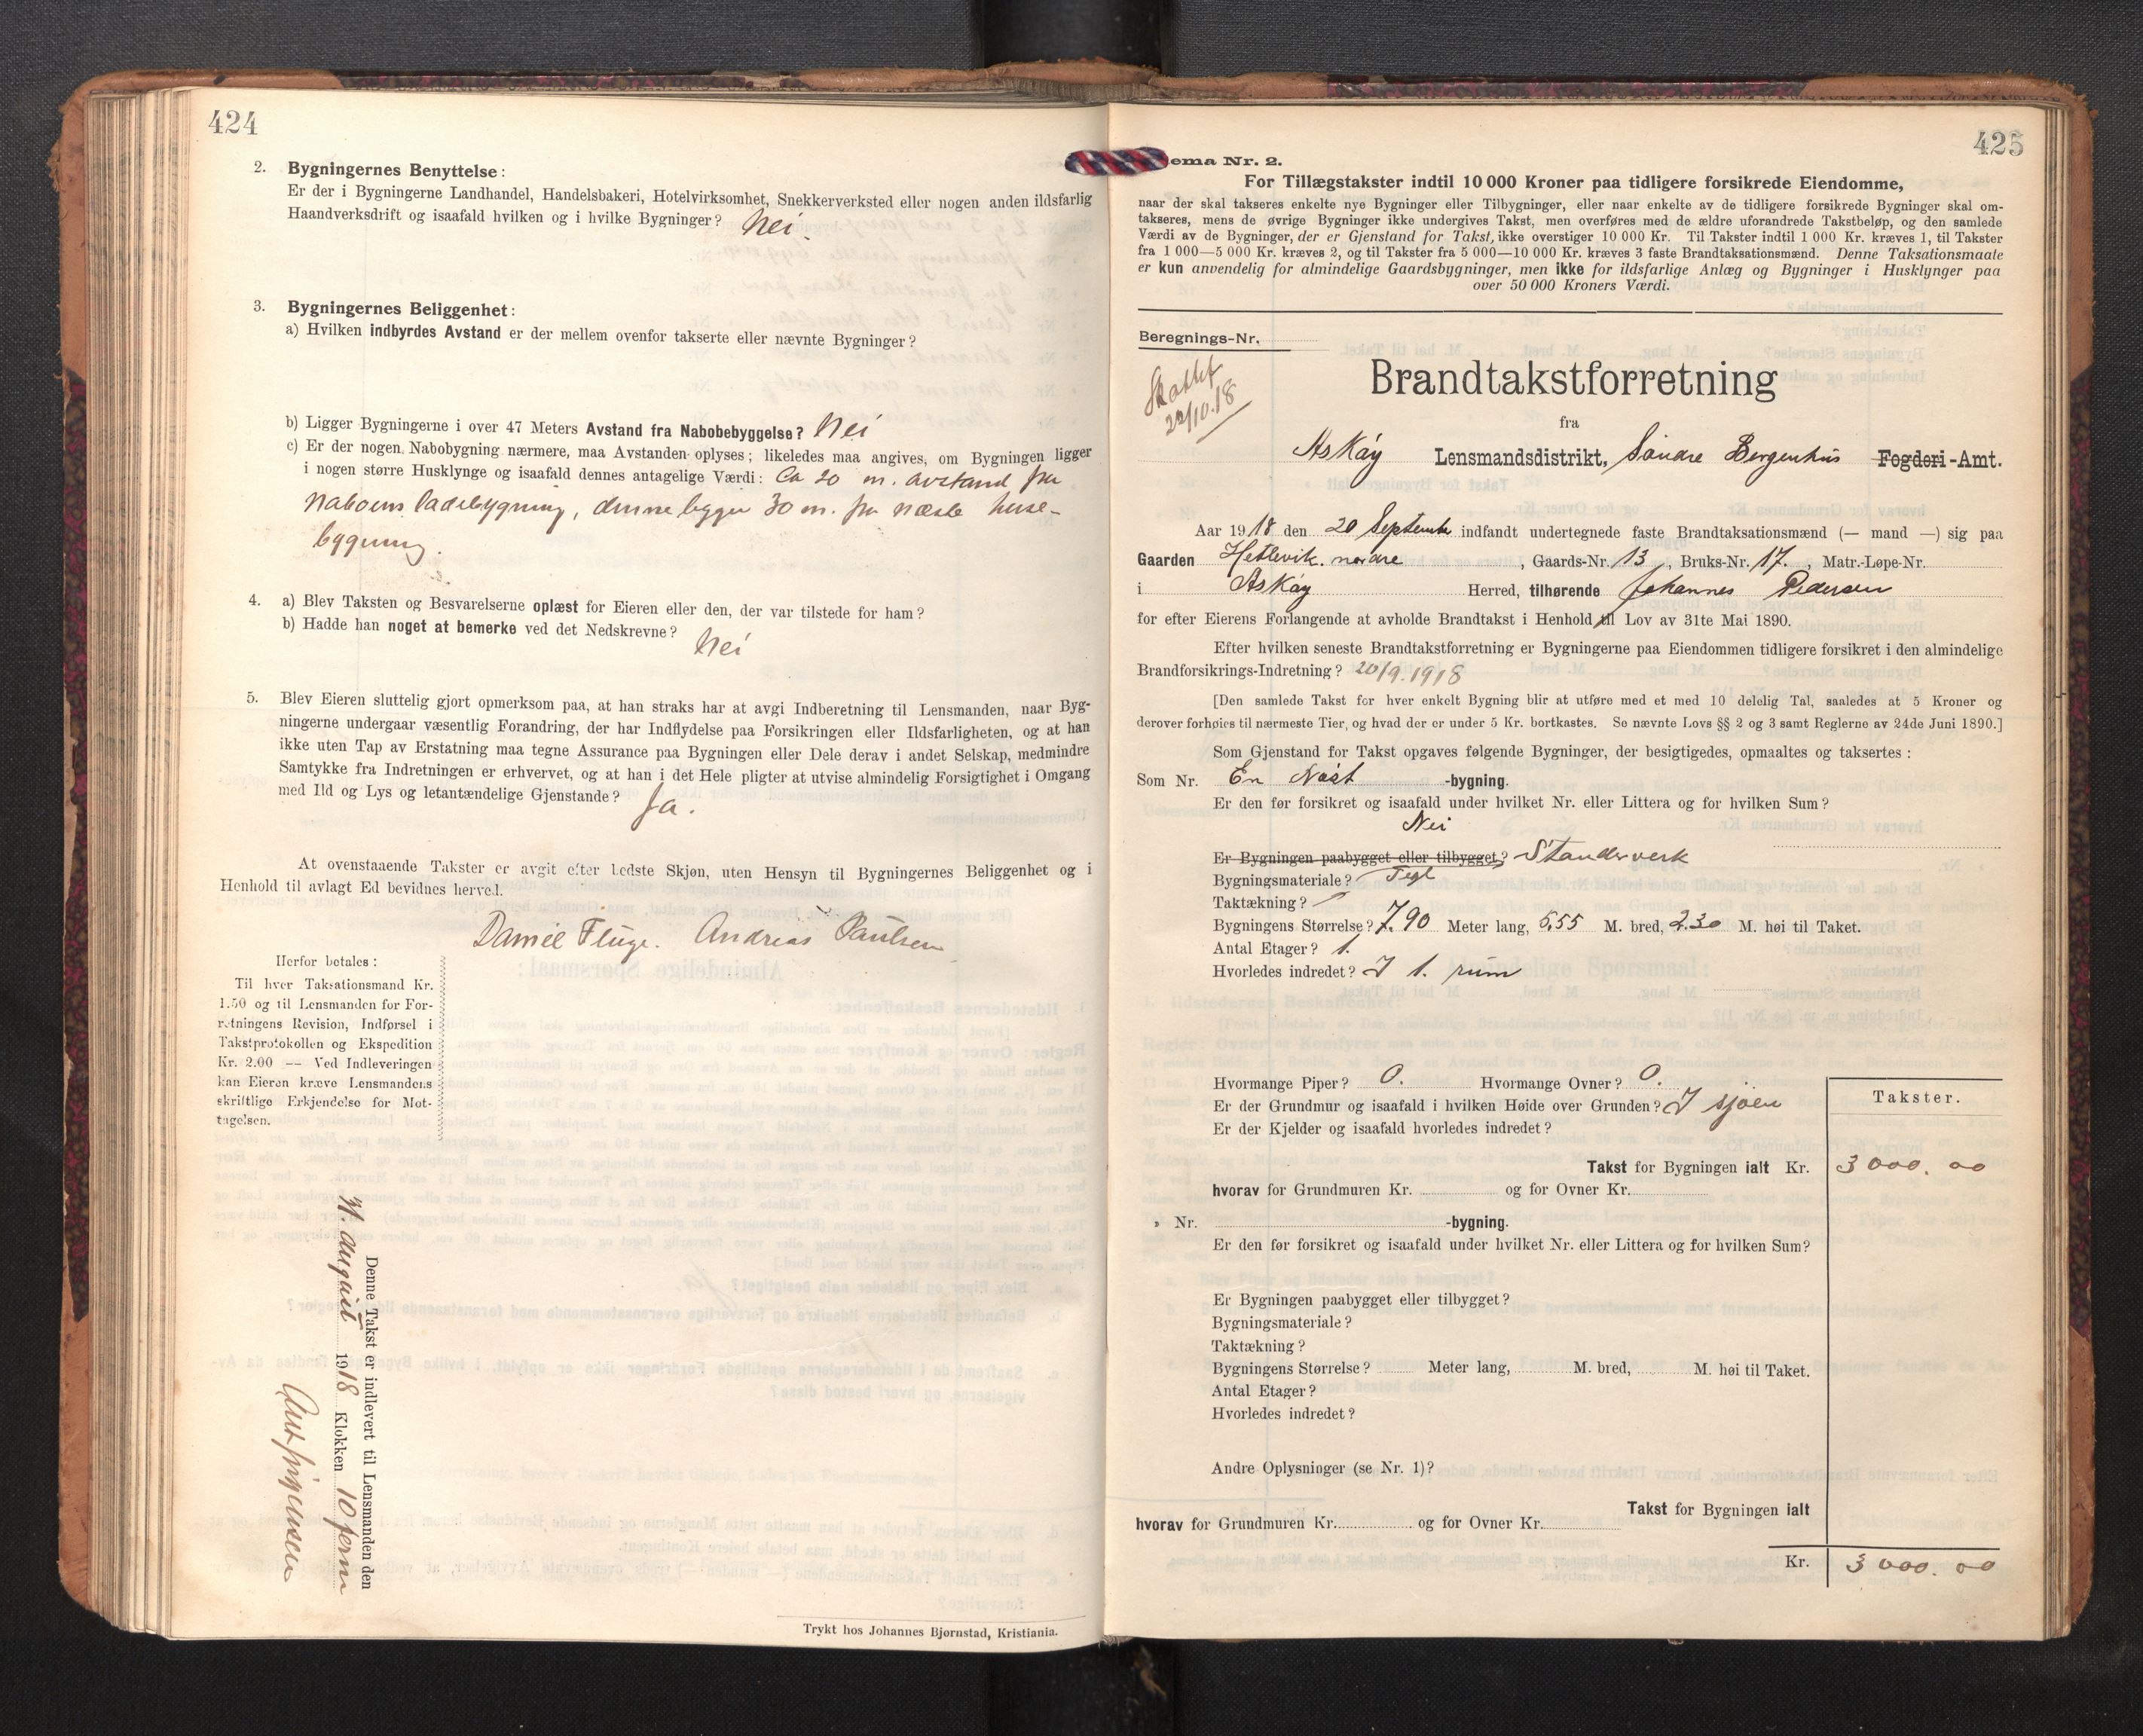 424
2. Bygningernes Benyttelse:
Er der i Bygningerne Landhandel, Handelsbakeri, Hotelvirksomhet, Snekkerverksted eller nogen anden ildsfarlig
Haandverksdrift og isaafald hvilken og i hvilke Bygninger? Nei.
3. Bygningernes Beliggenhet:
a) Hvilken indbyrdes Avstand er der mellem ovenfor takserte eller nævnte Bygninger?
b) Ligger Bygningerne i over 47 Meters Avstand fra Nabobebyggelse? Nei
c) Er der nogen Nabobygning nærmere, maa Avstanden oplyses; likeledes maa angives, om Bygningen ligger
i nogen større Husklynge og isaafald dennes antagelige Værdi: Ca 20 m. avstand fra
naboens ladebygning, denne ligger 30 m. fra næste huse-
bygning.
4. a) Blev Taksten og Besvarelserne oplæst for Eieren eller den, der var tilstede for ham?
b) Hadde han noget at bemerke ved det Nedskrevne?
Nei
5. Blev Eieren sluttelig gjort opmerksom paa, at han straks har at avgi Indberetning til Lensmanden, naar Byg-
ningerne undergaar væsentlig Forandring, der har Indflydelse paa Forsikringen eller Ildsfarligheten, og at han
ikke uten Tap av Erstatning maa tegne Assurance paa Bygningen eller Dele derav i andet Selskap, medmindre
Samtykke fra Indretningen er erhvervet, og at han i det Hele pligter at utvise almindelig Forsigtighet i Omgang
med Ild og Lys og letantændelige Gjenstande? Ja.
At ovenstaaende Takster er avgit efter bedste Skjøn, uten Hensyn til Bygningernes Beliggenhet og i
Henhold til avlagt Ed bevidnes herved.
Daniel Fluge. Andreas Paulsen
Herfor betales:
Til hver Taksationsmand Kr.
1.50 og til Lensmanden for For-
retningens Revision, Indførsel i
Takstprotokollen og Ekspedition
Kr. 2.00 — Ved Indleveringen
kan Eieren kræve Lensmandens
skriftlige Erkjendelse for Mot-
tagelsen.
Denne Takst er indlevert til Lensmanden den
august 1918 Klokken 10 form
Trykt hos Johannes Bjørnstad, Kristiania.
425
ema Nr. 2.
For Tillægstakster indtil 10 000 Kroner paa tidligere forsikrede Eiendomme,
naar der skal takseres enkelte nye Bygninger eller Tilbygninger, eller naar enkelte av de tidligere forsikrede Bygninger skal om-
takseres, mens de øvrige Bygninger ikke undergives Takst, men overføres med de ældre uforandrede Takstbeløp, og den samlede
Værdi av de Bygninger, der er Gjenstand for Takst, ikke overstiger 10 000 Kr. Til Takster indtil 1 000 Kr. kræves 1, til Takster
fra 1 000—5 000 Kr. kræves 2, og til Takster fra 5 000—10 000 Kr. kræves 3 faste Brandtaksationsmænd. Denne Taksationsmaate
er kun anvendelig for almindelige Gaardsbygninger, men ikke for ildsfarlige Anlæg og Bygninger i Husklynger paa
over 50 000 Kroners Værdi.
Beregnings-Nr.
Skattet
22/10.18
Brandtakstforretning
fra
Askøy Lensmandsdistrikt, Søndre Bergenhus Fogderi-Amt.
Aar 1918 den 20 Septembr indfandt undertegnede faste Brandtaksationsmænd (— mand —) sig paa
Gaarden Hetlevik nordre, Gaards-Nr. 13, Bruks-Nr. 17., Matr.-Løpe-Nr.
i Askøy Herred, tilhørende Johannes Pedersen
for efter Eierens Forlangende at avholde Brandtakst i Henhold til Lov av 31te Mai 1890.
Efter hvilken seneste Brandtakstforretning er Bygningerne paa Eiendommen tidligere forsikret i den almindelige
Brandforsikrings-Indretning? 20/9.1918
[Den samlede Takst for hver enkelt Bygning blir at utføre med et med 10 delelig Tal, saaledes at 5 Kroner og
derover forhøies til nærmeste Tier, og hvad der er under 5 Kr. bortkastes. Se nævnte Lovs §§ 2 og 3 samt Reglerne av 24de Juni 1890.]
Som Gjenstand for Takst opgaves følgende Bygninger, der besigtigedes, opmaaltes og taksertes:
Som Nr. En Nøst -bygning.
Er den før forsikret og isaafald under hvilket Nr. eller Littera og for hvilken Sum?
Nei
Er Bygningen paabygget eller tilbygget? Standerverk
Bygningsmateriale? Tegl
Taktækning?
Bygningens Størrelse? 7.90 Meter lang, 5.55 M. bred, 2.30 M. høi til Taket.
Antal Etager? 1.
Hvorledes indredet? I 1. rum
Hvormange Piper? 0. Hvormange Ovner? 0.
Er der Grundmur og isaafald i hvilken Høide over Grunden? I sjøen
Er der Kjelder og isaafald hvorledes indredet?
Takster.
Takst for Bygningen ialt Kr. 3000.00
hvorav for Grundmuren Kr. og for Ovner Kr.
» Nr. -bygning.
Er den før forsikret og isaafald under hvilket Nr. eller Littera og for hvilken Sum?
Er Bygningen paabygget eller tilbygget?
Bygningsmateriale?
Taktækning?
Bygningens Størrelse? Meter lang, M. bred, M. høi til Taket.
Antal Etager?
Hvorledes indredet?
Andre Oplysninger (se Nr. 1)?
Takst for Bygningen ialt
hvorav for Grundmuren Kr. og for Ovner Kr.
Kr. 3000.00